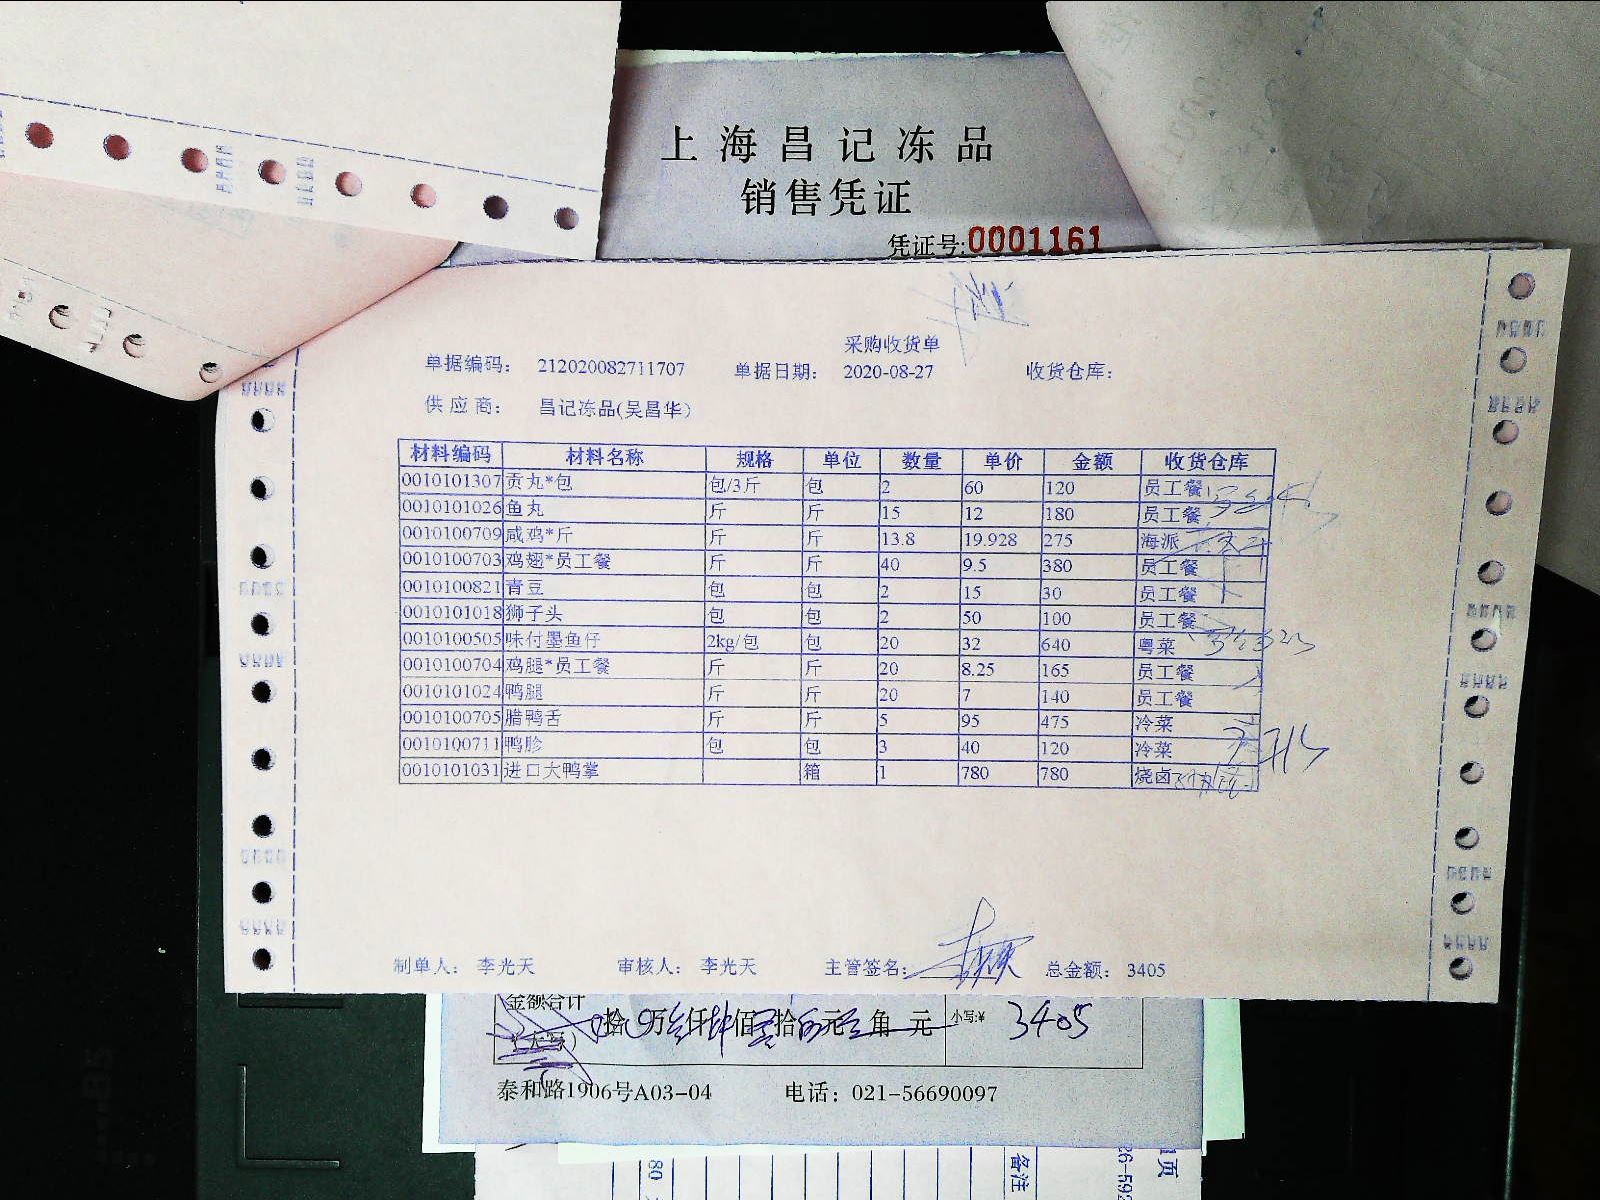 上海昌记冻品
销售凭证
凭证号:0001161
采购收货单
单据编码: 212020082711707 单据日期: 2020-08-27 收货仓库:
供应商: 昌记冻品(吴昌华)
材料编码 材料名称 规格 单位 数量 单价 金额 收货仓库
0010101307 贡丸*包 包/3斤 包 2 60 120 员工餐
0010101026 鱼丸 斤 斤 15 12 180 员工餐
0010100709 咸鸡*斤 斤 斤 13.8 19.928 275 海派
0010100703 鸡翅*员工餐 斤 斤 40 9.5 380 员工餐
0010100821 青豆 包 包 2 15 30 员工餐
0010101018 狮子头 包 包 2 50 100 员工餐
0010100505 味付墨鱼仔 2kg/包 包 20 32 640 粤菜
0010100704 鸡腿*员工餐 斤 斤 20 8.25 165 员工餐
0010101024 鸭腿 斤 斤 20 7 140 员工餐
0010100705 腊鸭舌 斤 斤 5 95 475 冷菜
0010100711 鸭胗 包 包 3 40 120 冷菜
0010101031 进口大鸭掌 箱 1 780 780 烧卤
制单人: 李光天 审核人: 李光天 主管签名: 总金额: 3405
金额合计
(大写) 拾 万 仟 佰 拾 元 角 元 小写:¥ 3405
泰和路1906号A03-04 电话: 021-56690097
80 备注 26-592 1页